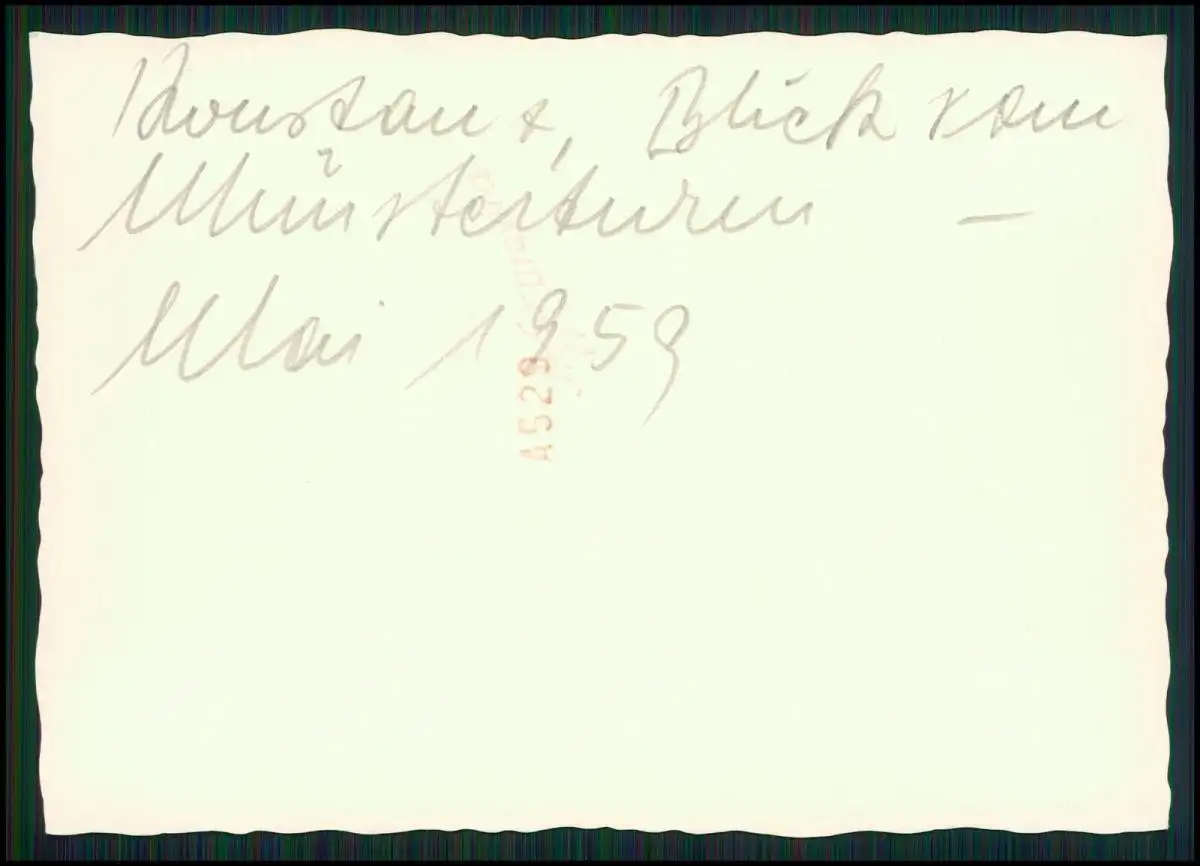 Konstanz, Blick vom
Münsterturm —
Mai 1959
A529